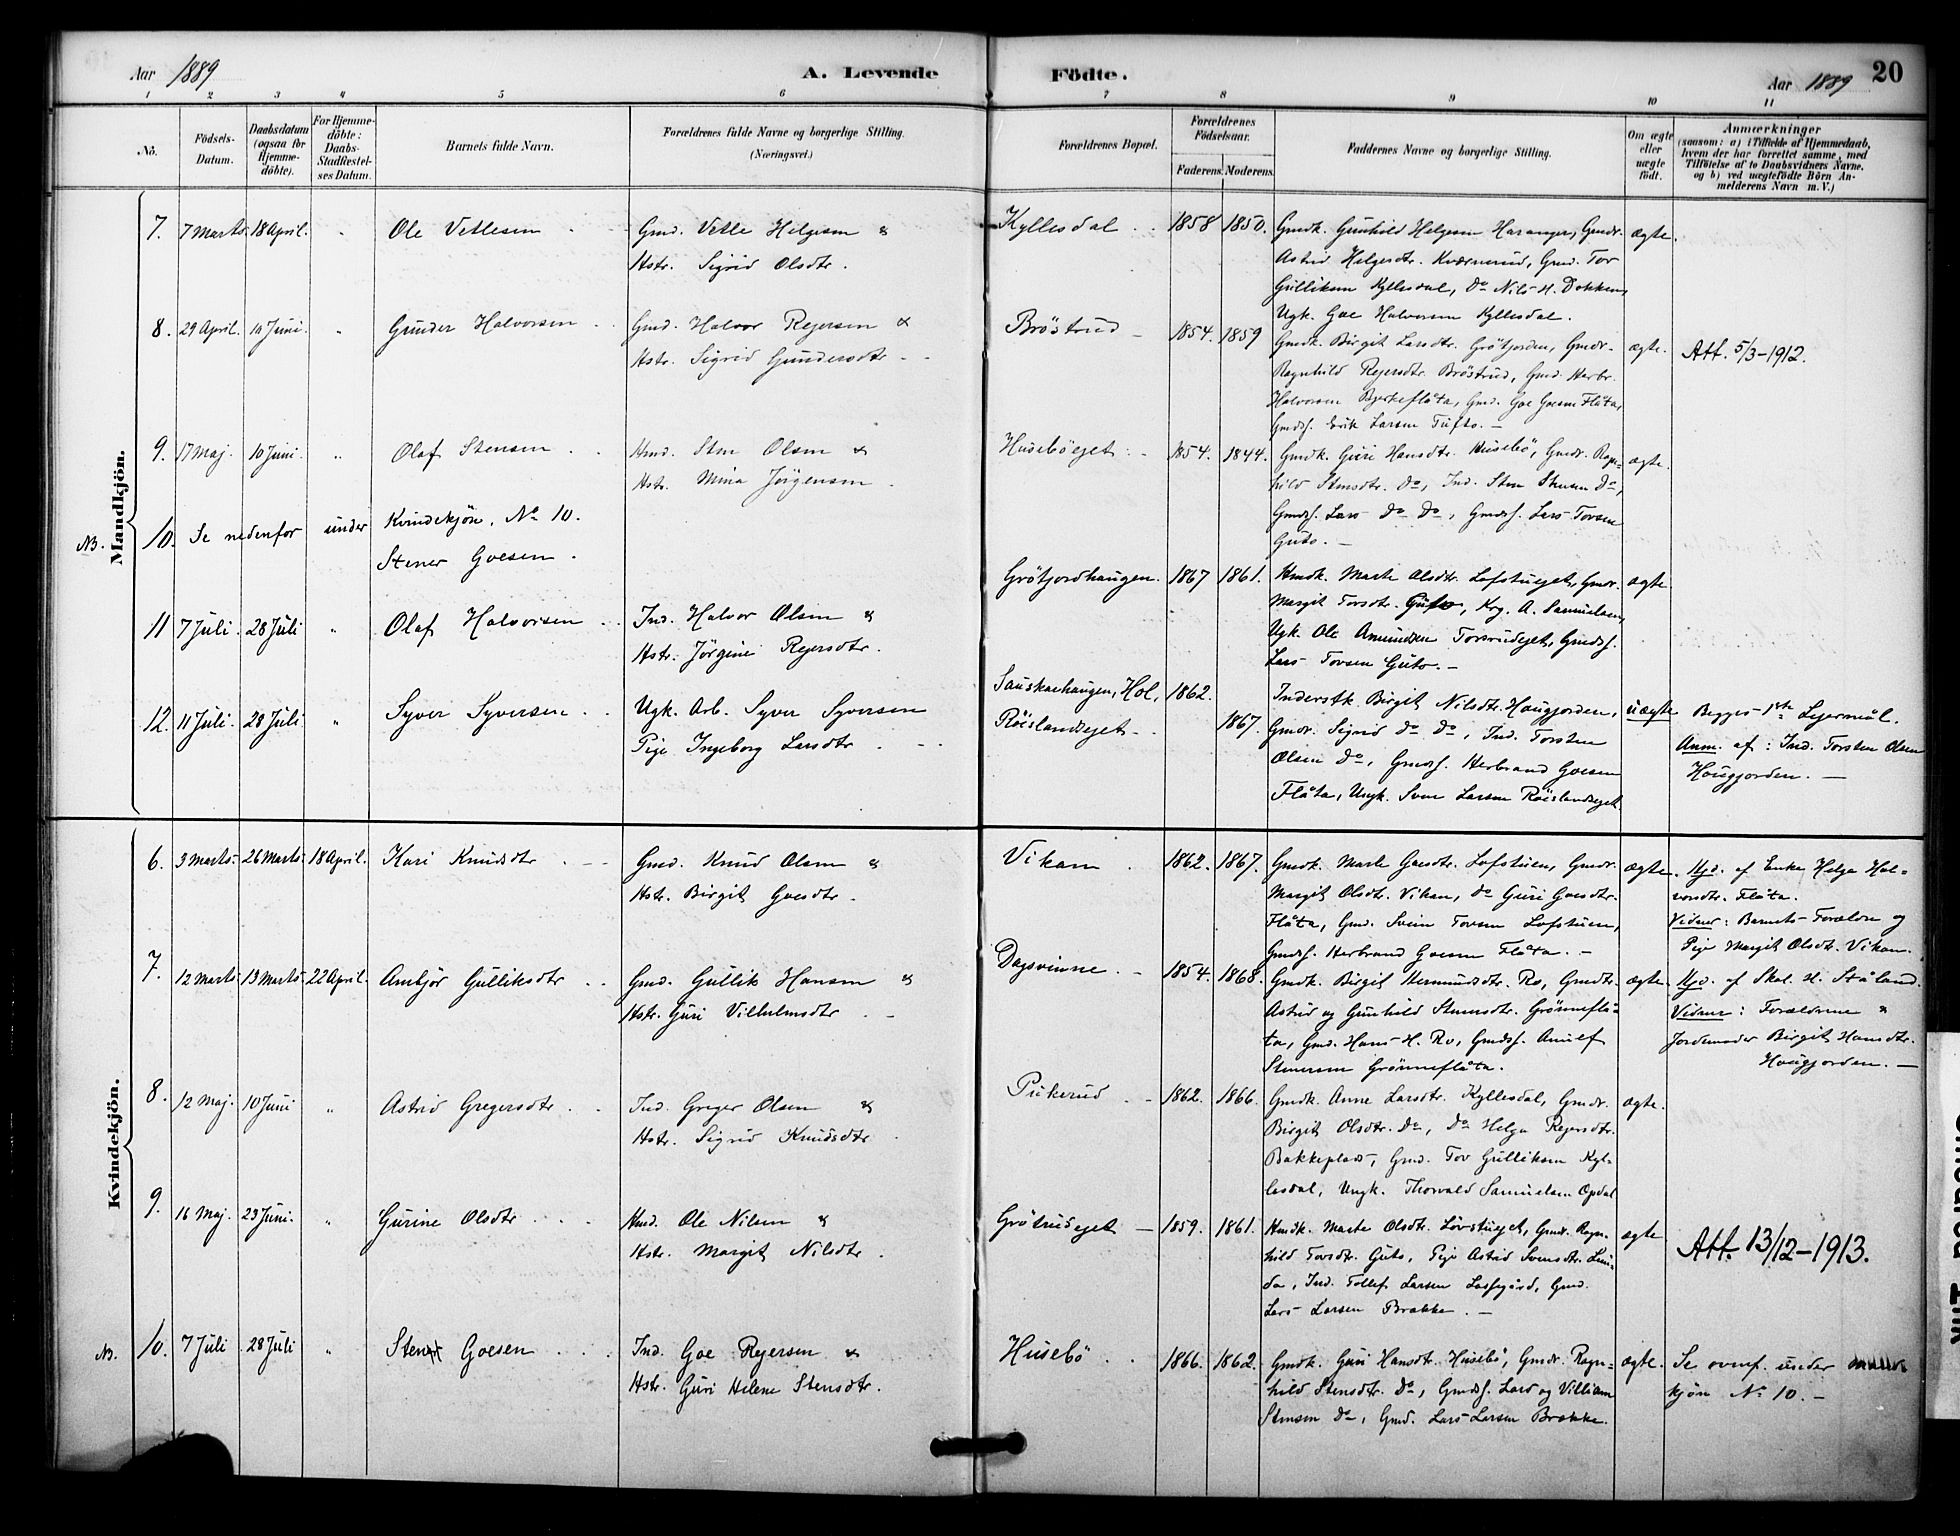 Aar 1889 A. Levende Födte. Aar 1889 20
1 2 3 4 5 6 7 8 9 10 11
No. Födsels-Datum. Daabsdatum (ogsaa for Hjemmedöbte). For Hjemmedöbte: Daabs-Stadfestelses Datum. Barnets fulde Navn. Forældrenes fulde Navne og borgerlige Stilling. (Næringsvei.) Forældrenes Bopæl. Forældrenes Födselsaar. Faderens. Moderens. Faddernes Navne og borgerlige Stilling. Om ægte eller uægte födt. Anmærkninger (saasom: a) i Tilfælde af Hjemmedaab, hvem der har forrettet samme, med Tilföielse af to Daabsvidners Navne, og b) ved uægtefödte Börn Anmelderens Navn m. V.)
Mandkjön.
7. 7 Marts 18 April. " Ole Vetlesen Gmd. Vetle Helgesen &
Hstr. Sigrid Olsdtr.
Kyllesdal 1858 1850. Gmdk. Gunhild Helgesen Haranger, Gmdr.
Astrid Helgesdtr. Kværnerud, Gmd. Tov
Gulliksen Kyllesdal, Do Nils H. Dokken,
Ugk. Goe Halvorsen Kyllesdal.
ægte.
8. 29 April. 10 Juni. " Gunder Halvorsen Gmd. Halvor Rejersen &
Hstr. Sigrid Gundersdtr
Bröstrud 1854. 1859 Gmdk. Birgit Larsdtr. Grötjorden, Gmdr.
Ragnhild Rejersdtr. Bröstrud, Gmd. Herbr.
Halvorsen Bjerkeflåta, Gmd. Goe Goesen Flåta,
Gmds. Erik Larsen Tufto.
ægte. Att. 5/3-1912.
9. 17 Maj. 10 Juni. " Olaf Stensen Hmd. Sten Olsen &
Hstr. Mina Jörgensen
Huseböeget 1854. 1844. Gmdk. Guri Hansdtr. Husebö, Gmdr. Ragnhild
Stensdtr. Do, Ind. Sten Stensen Do,
Gmds. Lars Do Do, Gmds. Lars Torsen
Guto.
ægte.
NB. 10. Se nedenfor under Kvindekjön, No 10.
Stener Goesen.
11 7 Juli. 28 Juli " Olaf Halvorsen Ind. Halvor Olsen &
Hstr. Jörgine Rejersdtr.
Grötjordhaugen. 1867 1861. Hmdk. Marte Olsdtr. Lofstueget, Gmdr.
Margit Torsdtr. Guto, Krg. A. Samuelsen,
Ugk. Ole Amundsen Torsrudeget, Gmds.
Lars Torsen Guto.
ægte
12. 11 Juli. 28 Juli " Syver Syversen Ugk. Arb. Syver Syversen
Pige Ingeborg Larsdtr
Sauskarhaugen, Hol, 1862.
Röislandseget 1867. Inderstk. Birgit Nilsdtr. Hougjorden,
Gmdr. Sigrid Do Do, Ind. Torsten
Olsen Do, Gmds. Herbrand Goesen
Flåta, Ungk. Sven Larsen Röislandseget
uægte Begges 1ste Lejermål.
Anm. af: Ind. Torsten Olsen
Hougjorden.
Kvindekjön.
6. 3 Marts 26 Marts 18 April. Kari Knudsdtr Gmd. Knud Olsen &
Hstr. Birgit Goesdtr.
Vikan 1862. 1867. Gmdk. Marte Goesdtr. Lofstuen, Gmdr.
Margit Olsdtr. Vikan, do Guri Goesdtr.
Flåta, Gmd. Svein Torsen Lofstuen,
Gmds. Herbrand Goesen Flåta.
ægte. Hjd. af Enke Helga Halvorsdtr.
Flåta.
Vidner: Barnets Forældre og
Pige Margit Olsdtr. Vikan.
7. 12 Marts 13 Marts 22 April. Ambjör Gulliksdtr Gmd. Gullik Hansen &
Hstr. Guri Vilhelmsdtr
Dagsvinne 1854. 1868. Gmdk. Birgit Hermundsdtr. Ro, Gmdtr.
Astrid og Gunhild Stenersdtr. Grönneflåta,
Gmd. Hans H. Ro, Gmds. Anulf
Stenersen Grönneflåta.
ægte. Hjd. af Skol. H. Ståland.
Vidner: Forældrene &
Jordemoder Birgit Hansdtr.
Hougjorden.
8. 12 Maj. 10 Juni " Astrid Gregersdtr Ind. Greger Olsen &
Hstr. Sigrid Knudsdtr
Pukerud 1862. 1866. Gmdk. Anne Larsdtr. Kyllesdal, Gmdr.
Birgit Olsdtr. Do, Do Helga Rejersdtr.
Bakkeplads, Gmd. Tov Gulliksen Kyllesdal,
Ungk. Thorvald Samuelsen Opdal
ægte.
9. 16 Maj. 23 Juni. " Gurine Olsdtr Hmd. Ole Nilsen &
Hstr. Margit Nilsdtr.
Grötrudeget 1859. 1861. Hmdk. Marte Olsdtr. Lövstueget, Gmdr. Ragnhild
Torsdtr. Guto, Pige Astrid Svensdtr. Linda,
Ind. Tollef Larsen Lassegård, Gmd.
Lars Larsen Brække.
ægte Att. 13/12-1913.
NB. 10. 7 Juli 28 Juli " Stener Goesen Ind. Goe Rejersen &
Hstr. Guri Helene Stensdtr.
Husebö 1866. 1862. Gmdk. Guri Hansdtr. Husebö, Gmdr. Ragnhild
Stensdtr. Do, Gmds. Lars og Villiam
Stensen Do, Gmd. Lars Larsen Brække.
ægte. Se ovenf. under
kjön No 10.